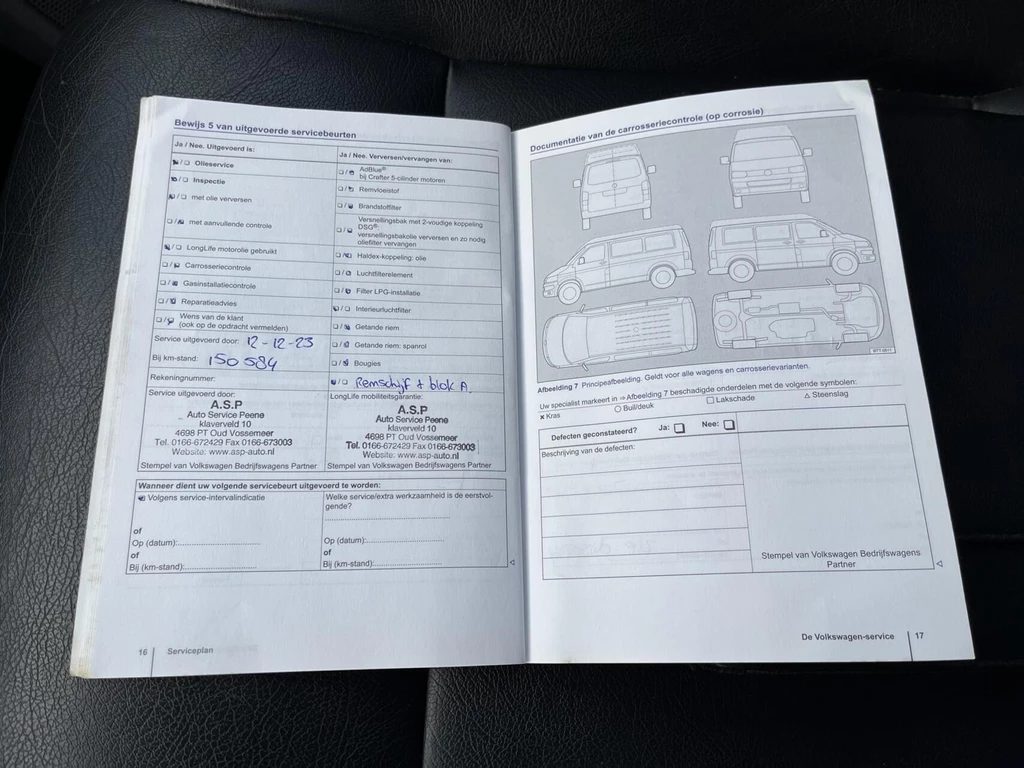 Bewijs 5 van uitgevoerde servicebeurten
Ja / Nee. Uitgevoerd is:
Olieservice
Inspectie
met olie verversen
met aanvullende controle
LongLife motorolie gebruikt
Carrosseriecontrole
Gasinstallatiecontrole
Reparatieadvies
Wens van de klant
(ook op de opdracht vermelden)
Service uitgevoerd door: 12-12-23
Bij km-stand: 150 584
Rekeningnummer:
Service uitgevoerd door:
A.S.P
Auto Service Peene
klaverveld 10
4698 PT Oud Vossemeer
Tel. 0166-672429 Fax 0166-673003
Website: www.asp-auto.nl
Stempel van Volkswagen Bedrijfswagens Partner
Ja / Nee. Verversen/vervangen van:
AdBlue®
bij Crafter 5-cilinder motoren
Remvloeistof
Brandstoffilter
Versnellingsbak met 2-voudige koppeling
DSG®:
versnellingsbakolie verversen en zo nodig
oliefilter vervangen
Haldex-koppeling: olie
Luchtfilterelement
Filter LPG-installatie
Interieurluchtfilter
Getande riem
Getande riem: spanrol
Bougies
Remschijf + blok A.
LongLife mobiliteitsgarantie:
A.S.P
Auto Service Peene
klaverveld 10
4698 PT Oud Vossemeer
Tel. 0166-672429 Fax 0166-673003
Website: www.asp-auto.nl
Stempel van Volkswagen Bedrijfswagens Partner
Wanneer dient uw volgende servicebeurt uitgevoerd te worden:
Volgens service-intervalindicatie
of
Op (datum):
of
Bij (km-stand):
Welke service/extra werkzaamheid is de eerstvol-
gende?
Op (datum):
of
Bij (km-stand):
16 Serviceplan
Documentatie van de carrosseriecontrole (op corrosie)
Afbeelding 7 Principeafbeelding. Geldt voor alle wagens en carrosserievarianten.
Uw specialist markeert in ⇒ Afbeelding 7 beschadigde onderdelen met de volgende symbolen:
× Kras ○ Buil/deuk □ Lakschade △ Steenslag
Defecten geconstateerd? Ja: □ Nee: □
Beschrijving van de defecten:
Stempel van Volkswagen Bedrijfswagens
Partner
De Volkswagen-service 17